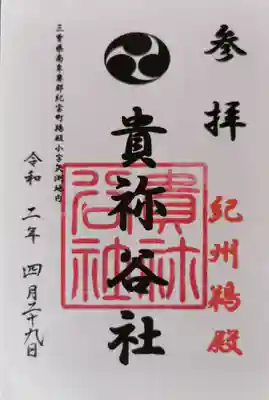 参拝
紀州鵜殿
貴祢谷社
貴祢谷社
三重県南牟婁郡紀宝町鵜殿小字矢渕地内
令和 二年 四月二十九日